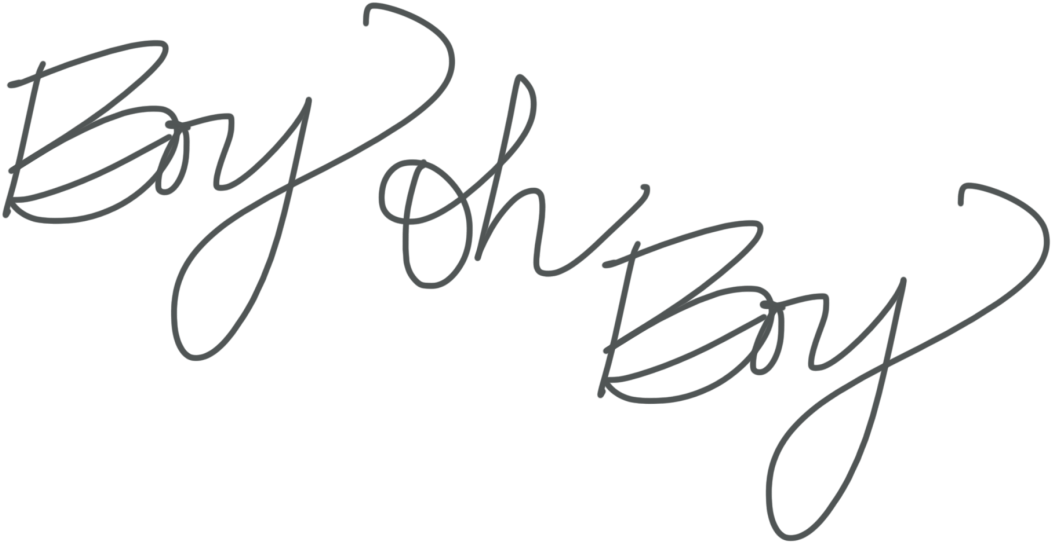 Boy oh Boy